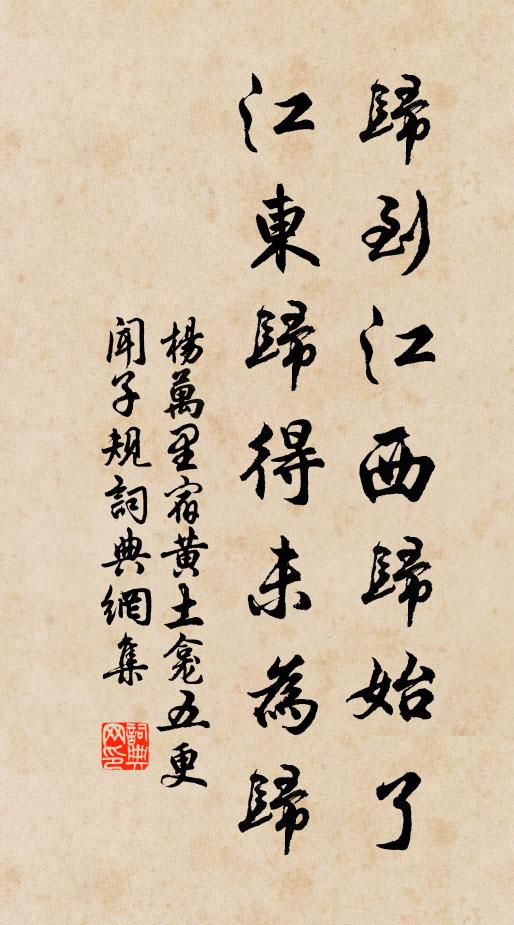 歸到江西歸始了
江東歸得未為歸
楊萬里宿黃土龕五更
聞子規詞典網集
詞典网印